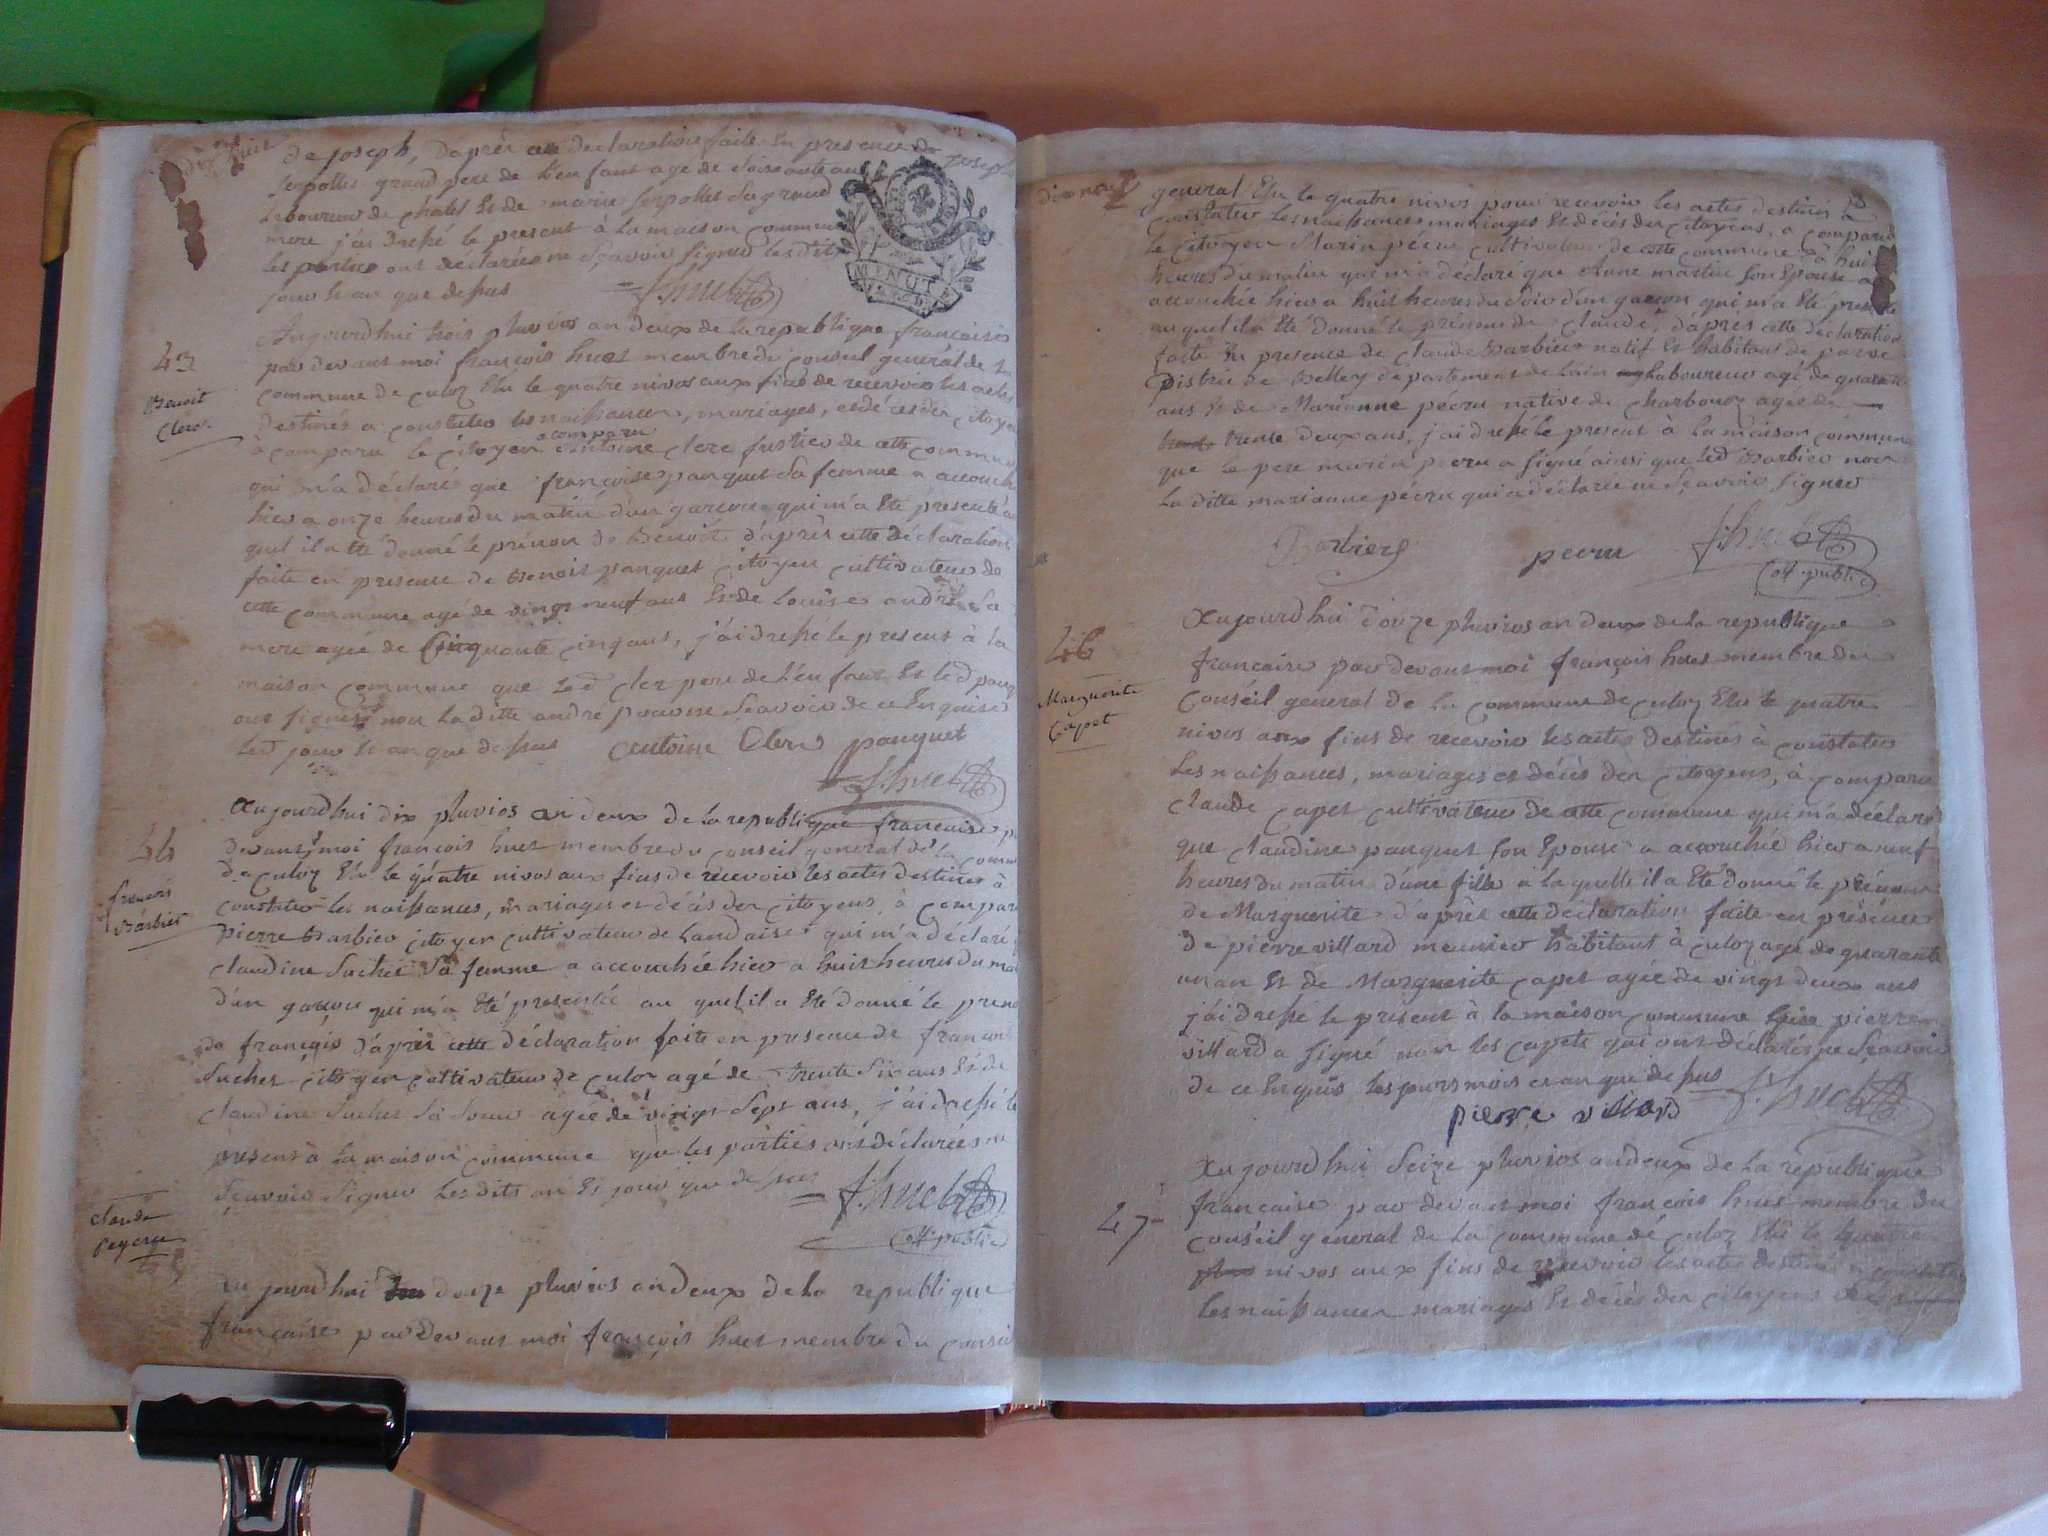 dix huit
de joseph, d'apres cette declaration faite en presence de joseph
serpollet grand pere de l'enfant agé de soixante ans
laboureur de chatel et de marie serpollet sa grand
mere j'ai dressé le present à la maison commune
les parties ont déclarées ne sçavoir signer lesdits
jour et an que dessus f. huet
MINUTE
Aujourdhui trois pluvios an deux de la republique francaise
43
par devant moi françois huet membre du conseil general de la
commune de culoz Elu le quatre nivos aux fins de recevoir les actes
Benoit
Clerc
destinés a constater les naissances, mariages, et décès des citoyens
à comparu le citoyen antoine clerc justier de cette commune
comparu
qui m'a déclaré que françoise panquet sa femme a accouché
hier a onze heures du matin d'un garçon qui m'a eté presenté au
quel il a eté donné le prénom de Benoit d'après cette déclaration
faite en presence de Benoit panquet citoyen cultivateur de
cette commune agé de vingt neuf ans et de Louise andré sa
mere agée de Cinquante cinq ans, j'ai dressé le present à la
maison commune que led clerc pere de l'enfant et led panquet
ont signés non la ditte andré pour ne sçavoir de ce Enquise
led jour et an que dessus antoine Clerc panquet
f. huet
aujourdhui dix pluvios an deux de la republique francaise par
44
devant moi francois huet membre du conseil general de la commune
de culoz Elu le quatre nivos aux fins de recevoir les actes destinés à
françois
Barbier
constater les naissances, mariages et décès des citoyens, à comparu
pierre Barbier citoyen cultivateur de Landaise qui m'a déclaré
claudine suchet sa femme a accouchée hier a huit heures du matin
d'un garçon qui m'a eté presenté au quel il a eté donné le prenom
de françois d'après cette déclaration faite en presence de francois
suchet citoyen cultivateur de culoz agé de trente six ans et de
claudine suchet sa soeur agée de vingt sept ans, j'ai dressé le
present à la maison commune que les parties ont déclarées ne
sçavoir signer lesdits an et jour que dessus f. huet
off. public
claude
Pecru
45
aujourdhui douze pluvios an deux de la republique
française par devant moi françois huet membre du conseil
dix neuf
general Elu le quatre nivos pour recevoir les actes destinés à
constater les naissances mariages et décès des citoyens, a comparu
le citoyen Marin pécru cultivateur de cette commune à huit
heures du matin qui m'a déclaré que Anne martin son Epouse a
accouchée hier a huit heures du soir d'un garçon qui m'a eté presenté
auquel il a eté donné le prénom de Claude, d'après cette déclaration
faite en presence de claude Barbier natif et habitant de parve
District de Belley département de l'ain laboureur agé de quarante
ans et de Marianne pécru native de charbonoz agée de
trente deux ans, j'ai dressé le present à la maison commune
que le pere marin pecru a signé ainsi que led Barbier non
la ditte marianne pécru qui a déclarée ne sçavoir signer
Barbier pecru f. huet
off. public
Aujourdhui douze pluvios an deux de la republique
46
francaise par devant moi françois huet membre du
Marguerite
Capet
Conseil general de la commune de culoz Elu le quatre
nivos aux fins de recevoir les actes destinés à constater
les naissances, mariages et décès des citoyens, à comparu
claude capet cultivateur de cette commune qui m'a déclaré
que claudine panquet son Epouse a accouchée hier a neuf
heures du matin d'une fille a laquelle il a eté donné le prénom
de Marguerite d'après cette déclaration faite en présence
de pierre villard meunier habitant à culoz agé de quarante
un an et de Marguerite capet agée de vingt deux ans
j'ai dressé le present à la maison commune que pierre
villard a signé non les capets qui ont déclarés ne sçavoir
de ce Enquis les jours mois et an que dessus f. huet
pierre villard
Aujourdhui Seize pluvios an deux de la republique
47
française par devant moi françois huet membre du
conseil general de la commune de culoz Elu le quatre
nivos aux fins de recevoir les actes destinés a constater
les naissances mariages et décès des citoyens